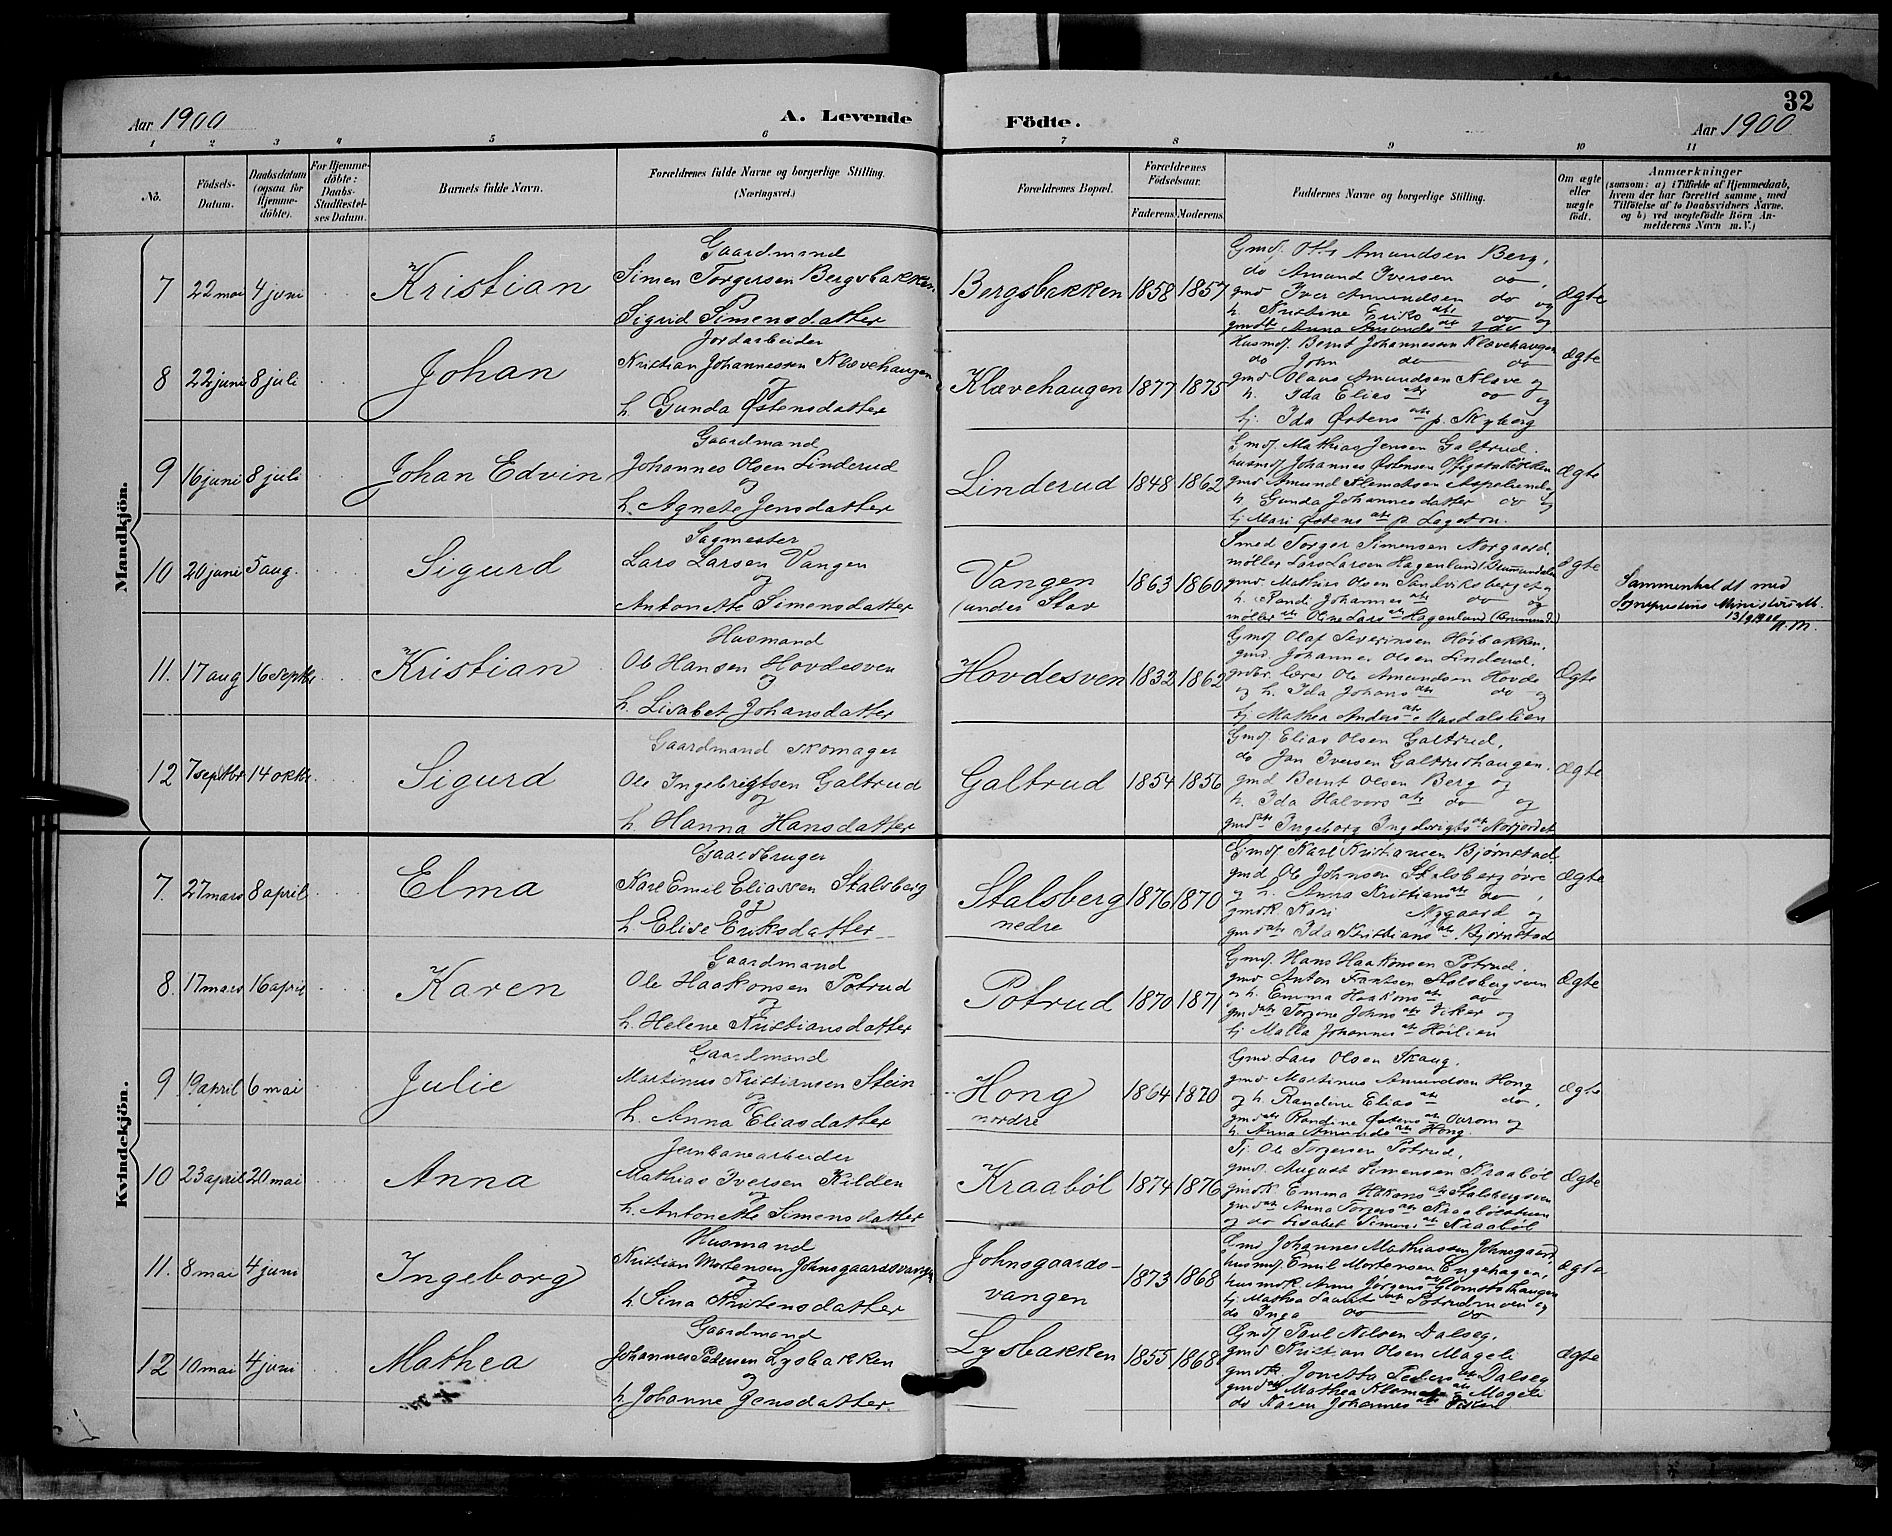 32
Aar 1900
A. Levende
Födte.
Aar 1900
1 2 3 4 5 6 7 8 9 10 11
No.
Födsels-
Datum.
Daabsdatum
(ogsaa for
Hjemme-
döbte).
For Hjemme-
döbte:
Daabs-
Stadfæstel-
ses Datum.
Barnets fulde Navn.
Forældrenes fulde Navne og borgerlige Stilling.
(Næringsvei.)
Forældrenes Bopæl.
Forældrenes
Födselsaar.
Faderens
Moderens
Faddernes Navne og borgerlige Stilling.
Om ægte
eller
uægte
födt.
Anmærkninger
(saasom: a) i Tilfælde af Hjemmedaab,
hvem der har forrettet samme, med
Tilföielse af to Daabsvidners Navne.
og b) ved uægtefödte Börn An-
melderens Navn m. V.)
Mandkjön.
7 22 mai 4 juni Kristian
Gaardmand
Simen Torgersen Bergsbakken
Sigrid Simensdatter
Bergsbakken 1858 1857
Gmd. Amundsen Berg,
do Amund Iversen do,
gmd Iver Amundsen do og
h. Kristine Eriks dtr do og
gmdtr Anna Amunds dtr do
Ægte
8 22 juni 8 juli Johan
Jordarbeider
Kristian Johannessen Klævehaugen
og
h. Gunda Østensdatter
Klævehaugen 1877 1875
Husmd. Bernt Johannessen Klævehaugen
do John do do
gmd Olaus Amundsen Kløve og
h. Ida Elias dtr do og
tj. Ida Østens dtr p. Skyberg
Ægte
9 16 juni 8 juli Johan Edvin
Gaardmand
Johannes Olsen Linderud
og
h. Agnete Jensdatter
Linderud 1848 1862
Gmd. Mathias Jensen Galtrud.
husmd Johannes Østensen
gmd Amund Klemetsen Aspelund og
h. Gunda Johannesdatter do og
tj. Mari Østens dtr p. Lageton.
Ægte
10 20 juni 5 aug. Sigurd
Sagmester
Lars Larsen Vangen
og
Antonette Simensdatter
Vangen
(under Stav 1863 1860
Smed Torger Simensen Norgaard,
møller Lars Larsen Hagenlund (Brummundalen
gmd. Mathias Olsen Sandviksberget og
h. Randi Johannes dtr do og
møller dtr Oline Lars dtr Hagenlund (Brummund.)
Ægte
Sammenholdt med
Sogneprestens Ministerialb.
11. 17 aug 16 septbr. Kristian
Husmand
Ole Hansen Hovdesven
og
h. Lisabet Johansdatter
Hovdesven 1832 1862
Gmd. Olaf Severinsen Hoibakken,
gmd. Johannes Olsen Linderud.
gmbr. lærer Ole Amundsen Hovde
og h. Ida Johans dtr do og
tj. Mathea Anders dtr Mardalslien
Ægte
12 7 septbr 14 oktbr. Sigurd
Gaardmand Skomager
Ole Ingebrigtsen Galtrud
og
h Hanna Hansdatter
Galtrud 1854 1856
Gmd. Elias Olsen Galtrud,
do Jan Iversen Galtrudhaugen.
gmd Bernt Olsen Berg og
h. Ida Halvors dtr do og
gmd dtr Ingeborg Ingebrigts dtr Norjordet
Ægte
Kvindekjön.
7. 27 mars 8 april Elma
Gaardbruger
Karl Emil Eliassen Stalsberg
og
h Elise Eriksdatter
Stalsberg
nedre 1876 1870
Gmd. Karl Kristiansen Bjørnstad.
gmd Ole Johnsen Stalsberg øvre
og h. Anna Kristians dtr do,
gmdk. Kari Nygaard og
gmd dtr Ida Kristians dtr Bjørnstad
Ægte
8. 17 mars 16 april Karen
Gaardmand
Ole Haakonsen Potrud
og
h. Helene Kristiansdatter
Potrud 1870 1871
Gmd. Hans Haakonsen Potrud.
gmd Anton Frantsen Stalsbergsven
og h. Emma Haakons dtr do
gmd dtr Torgine Johns dtr og
tj. Malla Johannes dtr Høilien
Ægte
9 19 april 6 mai Julie
Gaardmand
Martinus Kristiansen Stein
og
h. Anna Eliasdatter
Hong
nordre 1864 1870
Gmd. Lars Olsen Skaug,
gmd Martinus Amundsen Hong
og h. Randine Elias dtr do,
gmd dtr Randine Østens dtr og
h. Anna Amunds dtr Hong.
Ægte
10 23 april 20 mai Anna
Jernbanearbeider
Mathias Iversen Kilden
og
h. Antonette Simensdatter
Kraabøl 1874 1876
Tj. Ole Torgersen Potrud,
gmd. August Simensen Kraabøl
gmdk. Emma Håkons dtr Stalsbergsven
gmd dtr Anna Torgers dtr Kraabølstuen
og do Lisabet Simens dtr Kraabøl
Ægte
11. 8 mai 4 juni Ingeborg
Husmand
Kristian Mortensen Johnsgaardsvangen
og
h. Sina Kristensdatter
Johnsgaards-
vangen 1873 1868
Gmd Johannes Mathiassen Johnsgaard,
husmd. Emil Mortensen Engehagen,
husmdk. Anne Jørgens dtr Glomstshaugen
tj. Mathea Laurits dtr Potrudmoen og
do Inga do do
Ægte
12 10 mai 4 juni Mathea
Gaardmand
Johannes Pedersen Lysbakken
og
h. Johanne Jensdatter.
Lysbakken 1855 1868
Gmd. Paul Nilsen Dalseg,
gmd Kristian Olsen Mageli
gmdk. Jonetta Peders dtr Dalseg
gmd dtr Mathea Klemets dtr Mageli
do Karen Johannes dtr
Ægte